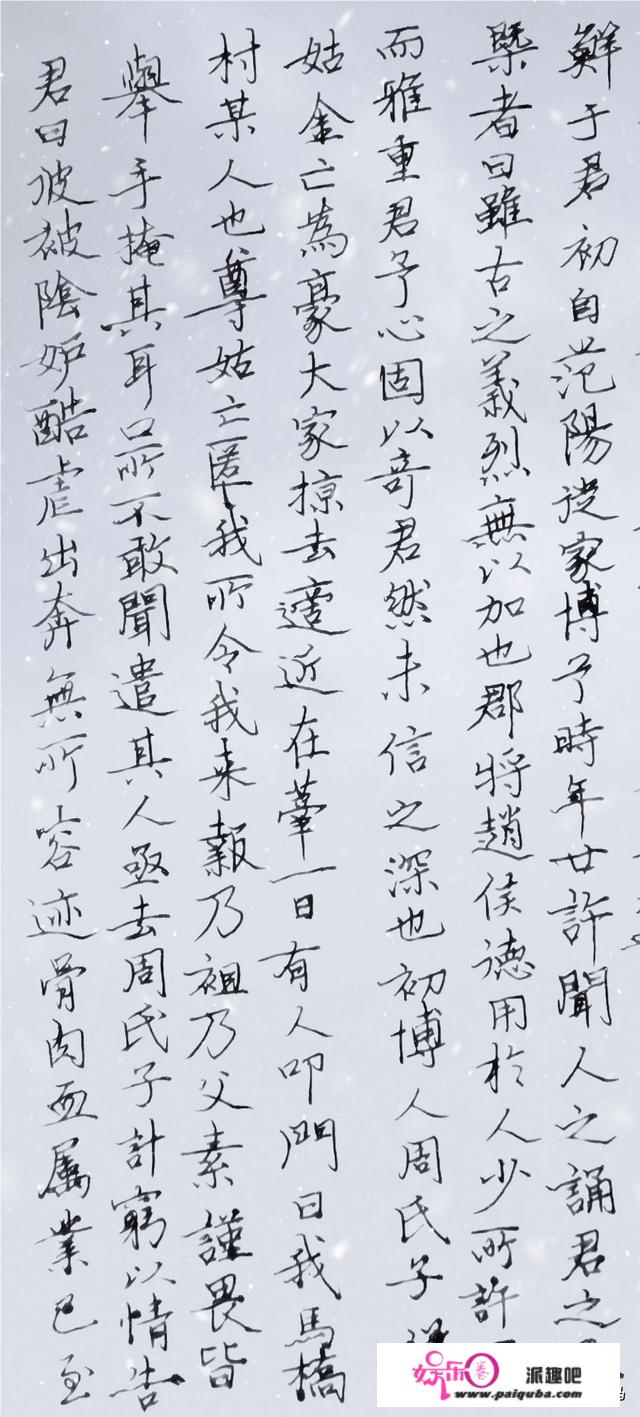 鮮于君初自范陽從家博予時年廿許聞人之誦君之
槩者曰雖古之義烈無以加也郡將趙侯德用於人少所許
而雅重君予心固以奇君然未信之深也初博人周氏子
姑金亡為豪大家掠去邇近在莘一日有人叩門曰我馬橋
村某人也尊姑亡匿我所令我来報乃祖乃父素謹畏皆
舉手掩其耳口所不敢聞遣其人亟去周氏子計窮以情告
君曰彼被陰妒酷虐出奔無所容迹骨肉血屬業已至
娱乐卷
派趣吧
www.paiquba.com